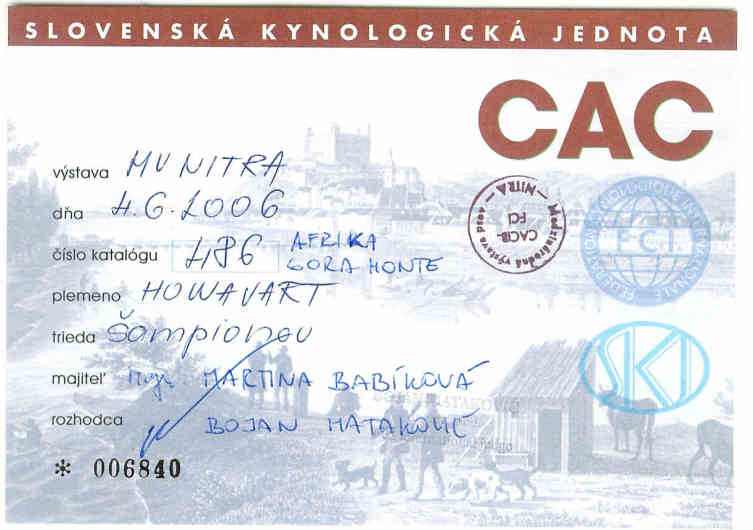 SLOVENSKÁ KYNOLOGICKÁ JEDNOTA
CAC
výstava MV NITRA
dňa 4.6.2006
číslo katalógu 486 AFRIKA
GORA MONTE
plemeno HOWAVART
trieda Šampionov
majiteľ MARTINA BABÍKOVÁ
rozhodca BOJAN MATAKOVIČ
* 006840
Medzinárodná výstava psov
– NITRA –
CACIB-
FCI
F.C.I.
SKJ